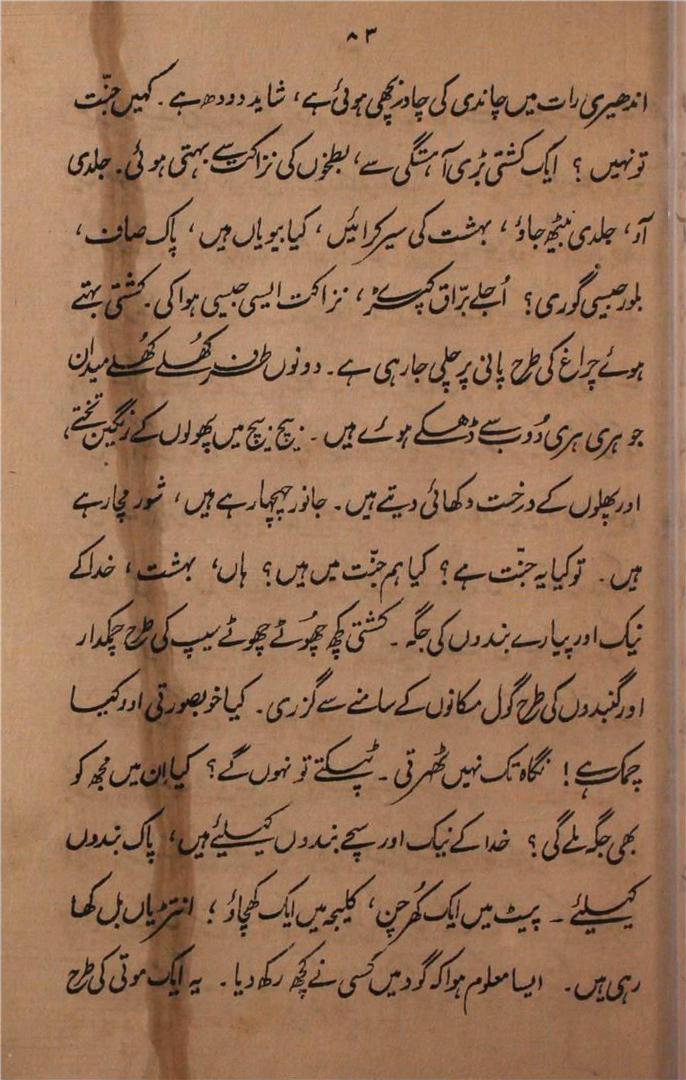 ۸۳
اندھیری رات میں چاندی کی چادر بچھی ہوئی ہے، شاید دودھ ہے۔ کہیں جنّت
تو نہیں؟ ایک کشتی بڑی آہستگی سے، بطخوں کی نزاکت سے بہتی ہوئی۔ جلدی
آؤ، جلدی بیٹھ جاؤ، بہشت کی سیر کرائیں، کیا بیویاں ہیں، پاک صاف،
بلور جیسی گوری؟ اُجلے برّاق کپڑے، نزاکت ایسی جیسی ہوا کی۔ کشتی بہتے
ہوئے چراغ کی طرح پانی پر چلی جا رہی ہے۔ دونوں طرف کھُلے کھُلے میدان
جو ہری ہری دُوب سے ڈھکے ہوئے ہیں۔ بیچ بیچ میں پھولوں کے رنگین تختے،
اور پھلوں کے درخت دکھائی دیتے ہیں۔ جانور چہچہا رہے ہیں، شور مچا رہے
ہیں۔ تو کیا یہ جنّت ہے؟ کیا ہم جنّت میں ہیں؟ ہاں، بہشت، خدا کے
نیک اور پیارے بندوں کی جگہ۔ کشتی کچھ چھوٹے چھوٹے سیپ کی طرح چمکدار
اور گنبدوں کی طرح گول مکانوں کے سامنے سے گزری۔ کیا خوبصورتی اور کیسا
چمک ہے! نگاہ تک نہیں ٹھہرتی۔ ٹپکتے تو نہوں گے؟ کیا اِن میں مجھ کو
بھی جگہ ملے گی؟ خدا کے نیک اور سچے بندوں کیلئے ہیں، پاک بندوں
کیلئے۔ پیٹ میں ایک کھُرچن، کلیجہ میں ایک کھچاؤ؛ انتڑیاں بل کھا
رہی ہیں۔ ایسا معلوم ہوا کہ گود میں کسی نے کچھ رکھ دیا۔ یہ ایک موتی کی طرح